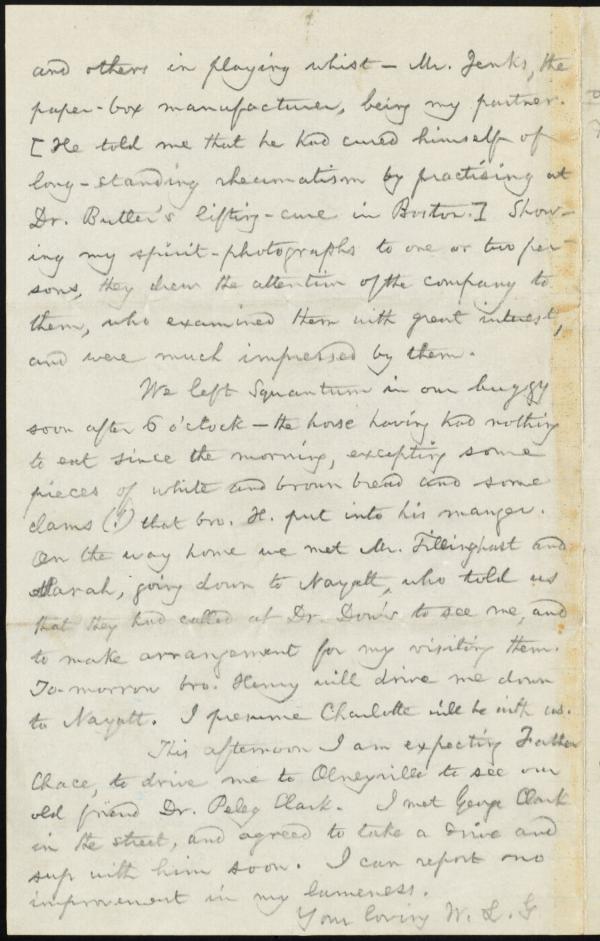 and others in playing whist — Mr. Jenks, the
paper-box manufacturer, being my partner.
[He told me that he had cured himself of
long-standing rheumatism by practising at
Dr. Butler's lifting-cure in Boston.] Show-
ing my spirit-photographs to one or two per-
sons, they drew the attention of the company to
them, who examined them with great interest,
and were much impressed by them.
We left Squantum in our buggy
soon after 6 o'clock — the horse having had nothing
to eat since the morning, excepting some
pieces of white and brown bread and some
clams (!) that bro. H. put into his manger.
On the way home we met Mr. Tillinghast and
Sarah, going down to Nayatt, who told us
that they had called at Dr. Dow's to see me, and
to make arrangement for my visiting them.
To-morrow bro. Henry will drive me down
to Nayatt. I presume Charlotte will be with us.
This afternoon I am expecting Father
Chace, to drive me to Olneyville to see our
old friend Dr. Peleg Clark. I met George Clark
in the street, and agreed to take a drive and
sup with him soon. I can report no
improvement in my lameness.
Your loving W. L. G